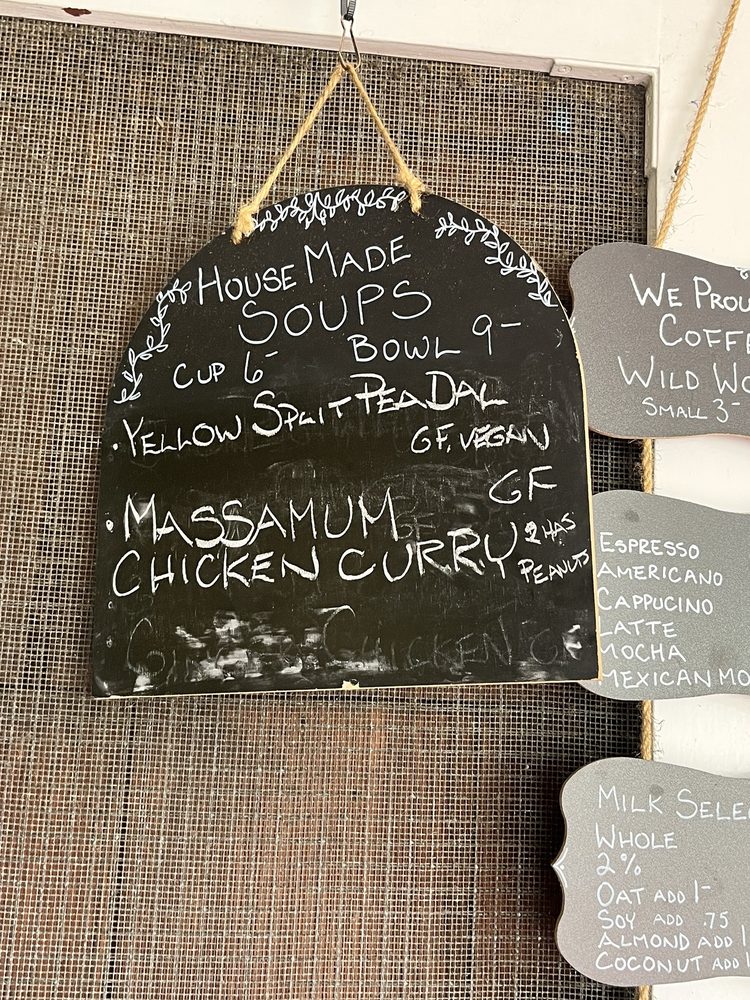 HOUSE MADE
SOUPS
CUP 6- BOWL 9-
· YELLOW SPLIT PEA DAL
GF, VEGAN
GF
· MASSAMUM
CHICKEN CURRY
HAS
PEANUTS
GINGER CHICKEN GF
WE
COFFE
WILD
SMALL 3-
ESPRESSO
AMERICANO
CAPPUCINO
LATTE
MOCHA
MEXICAN MO
MILK SELE
WHOLE
2%
OAT ADD 1-
SOY ADD .75
ALMOND ADD 1
COCONUT ADD 1